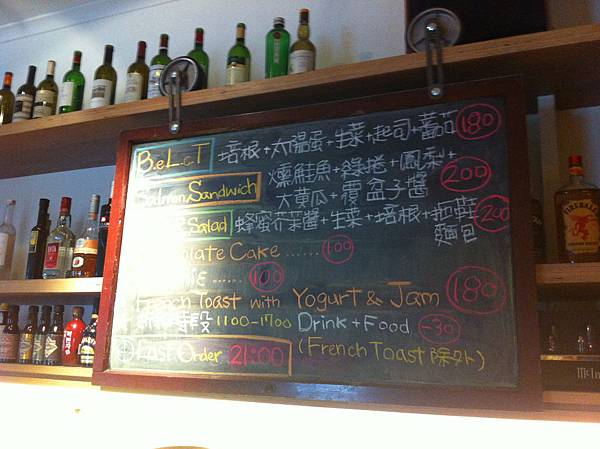 B.e L.c T 培根+太陽蛋+生菜+起司+蕃茄 180
Salmon Sandwich 燻鮭魚+綠捲+鳳梨+ 200
大黃瓜+覆盆子醬
Salad 蜂蜜芥茉醬+生菜+培根+拖鞋 200
麵包
Cake ...... 100
...... 100
French Toast with Yogurt & Jam 180
段 1100-1700 Drink + Food -30
Last Order 21:00 (French Toast 除外)
FIREBALL